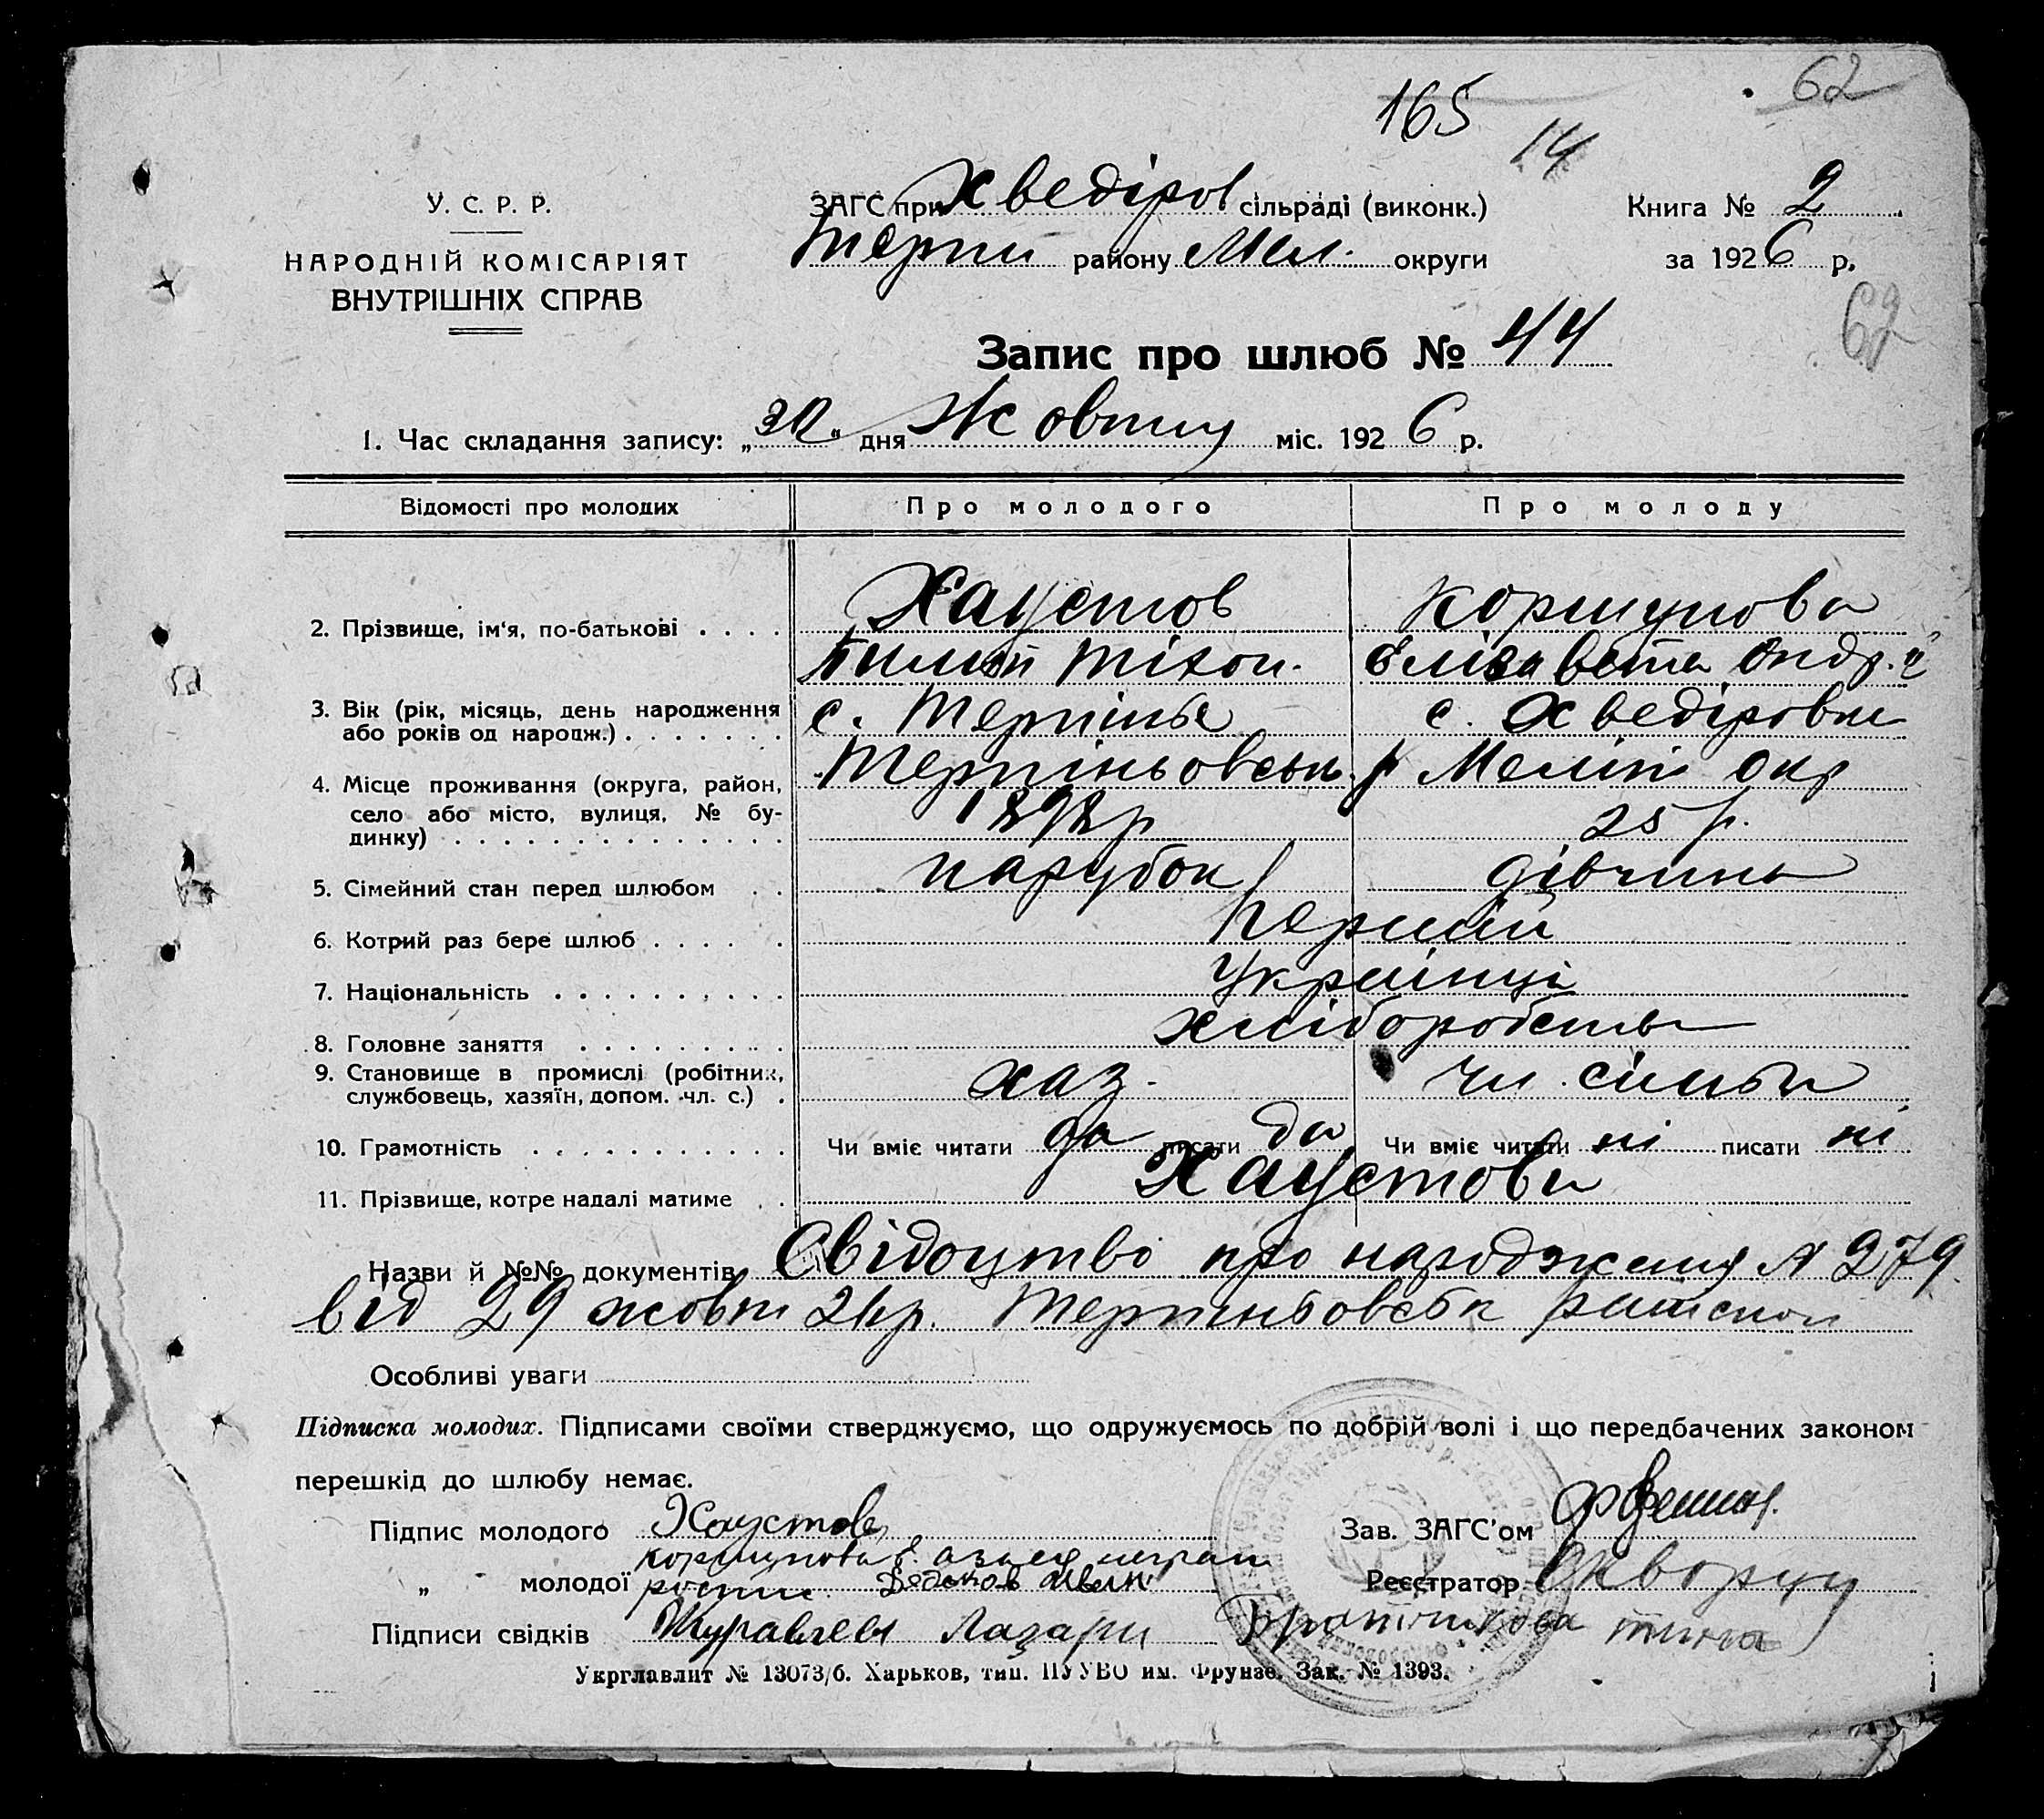 62
165
14
У. С. Р. Р.
НАРОДНІЙ КОМІСАРІЯТ
ВНУТРІШНІХ СПРАВ
ЗАГС при Хведіров сільраді (виконк.)
Терпи району Мел. округи
Книга № 2
за 1926 р.
62
Запис про шлюб № 44
1. Час складання запису: „30“ дня Жовтну міс. 1926 р.
Відомості про молодих Про молодого Про молоду
2. Прізвище, ім'я, по-батькові . . . . Хаустов Коршунова
Тіхон. Єлізавета Андр.
3. Вік (рік, місяць, день народження с. Терпіньє с. Хведіровки
або років од народж.) . . . . . . .
4. Місце проживання (округа, район, Терпіньовськ. р Меліт окр
село або місто, вулиця, № бу- 1898р 25 р.
динку) . . . . . . . . . . . . . .
5. Сімейний стан перед шлюбом . . парубок дівчина
6. Котрий раз бере шлюб . . . . . Перший
7. Національність . . . . . . . . . . Українці
8. Головне заняття . . . . . . . . . . хліборобств
9. Становище в промислі (робітник, хаз. чл. сімьи
службовець, хазяїн, допом. чл. с.) .
10. Грамотність . . . . . . . . . . . Чи вміє читати да писати да Чи вміє читати ні писати ні
11. Прізвище, котре надалі матиме . . Хаустови
Назви й №№ документів Свідоцтво про народженя № 279
від 29 жовт 26р. Терпиньовськ
Особливі уваги
Підписка молодих. Підписами своїми стверджуємо, що одружуємось по добрій волі і що передбачених законом
перешкід до шлюбу немає.
Підпис молодого Хаустов
Зав. ЗАГС'ом
Коршунова а за неї неграм
„ молодої роспис
Реєстратор Скворцу
Підписи свідків Журавлев Лазарь
Укрглавлит № 13073/б. Харьков, тип. ПУУВО им. Фрунзе. Зак. № 1393.